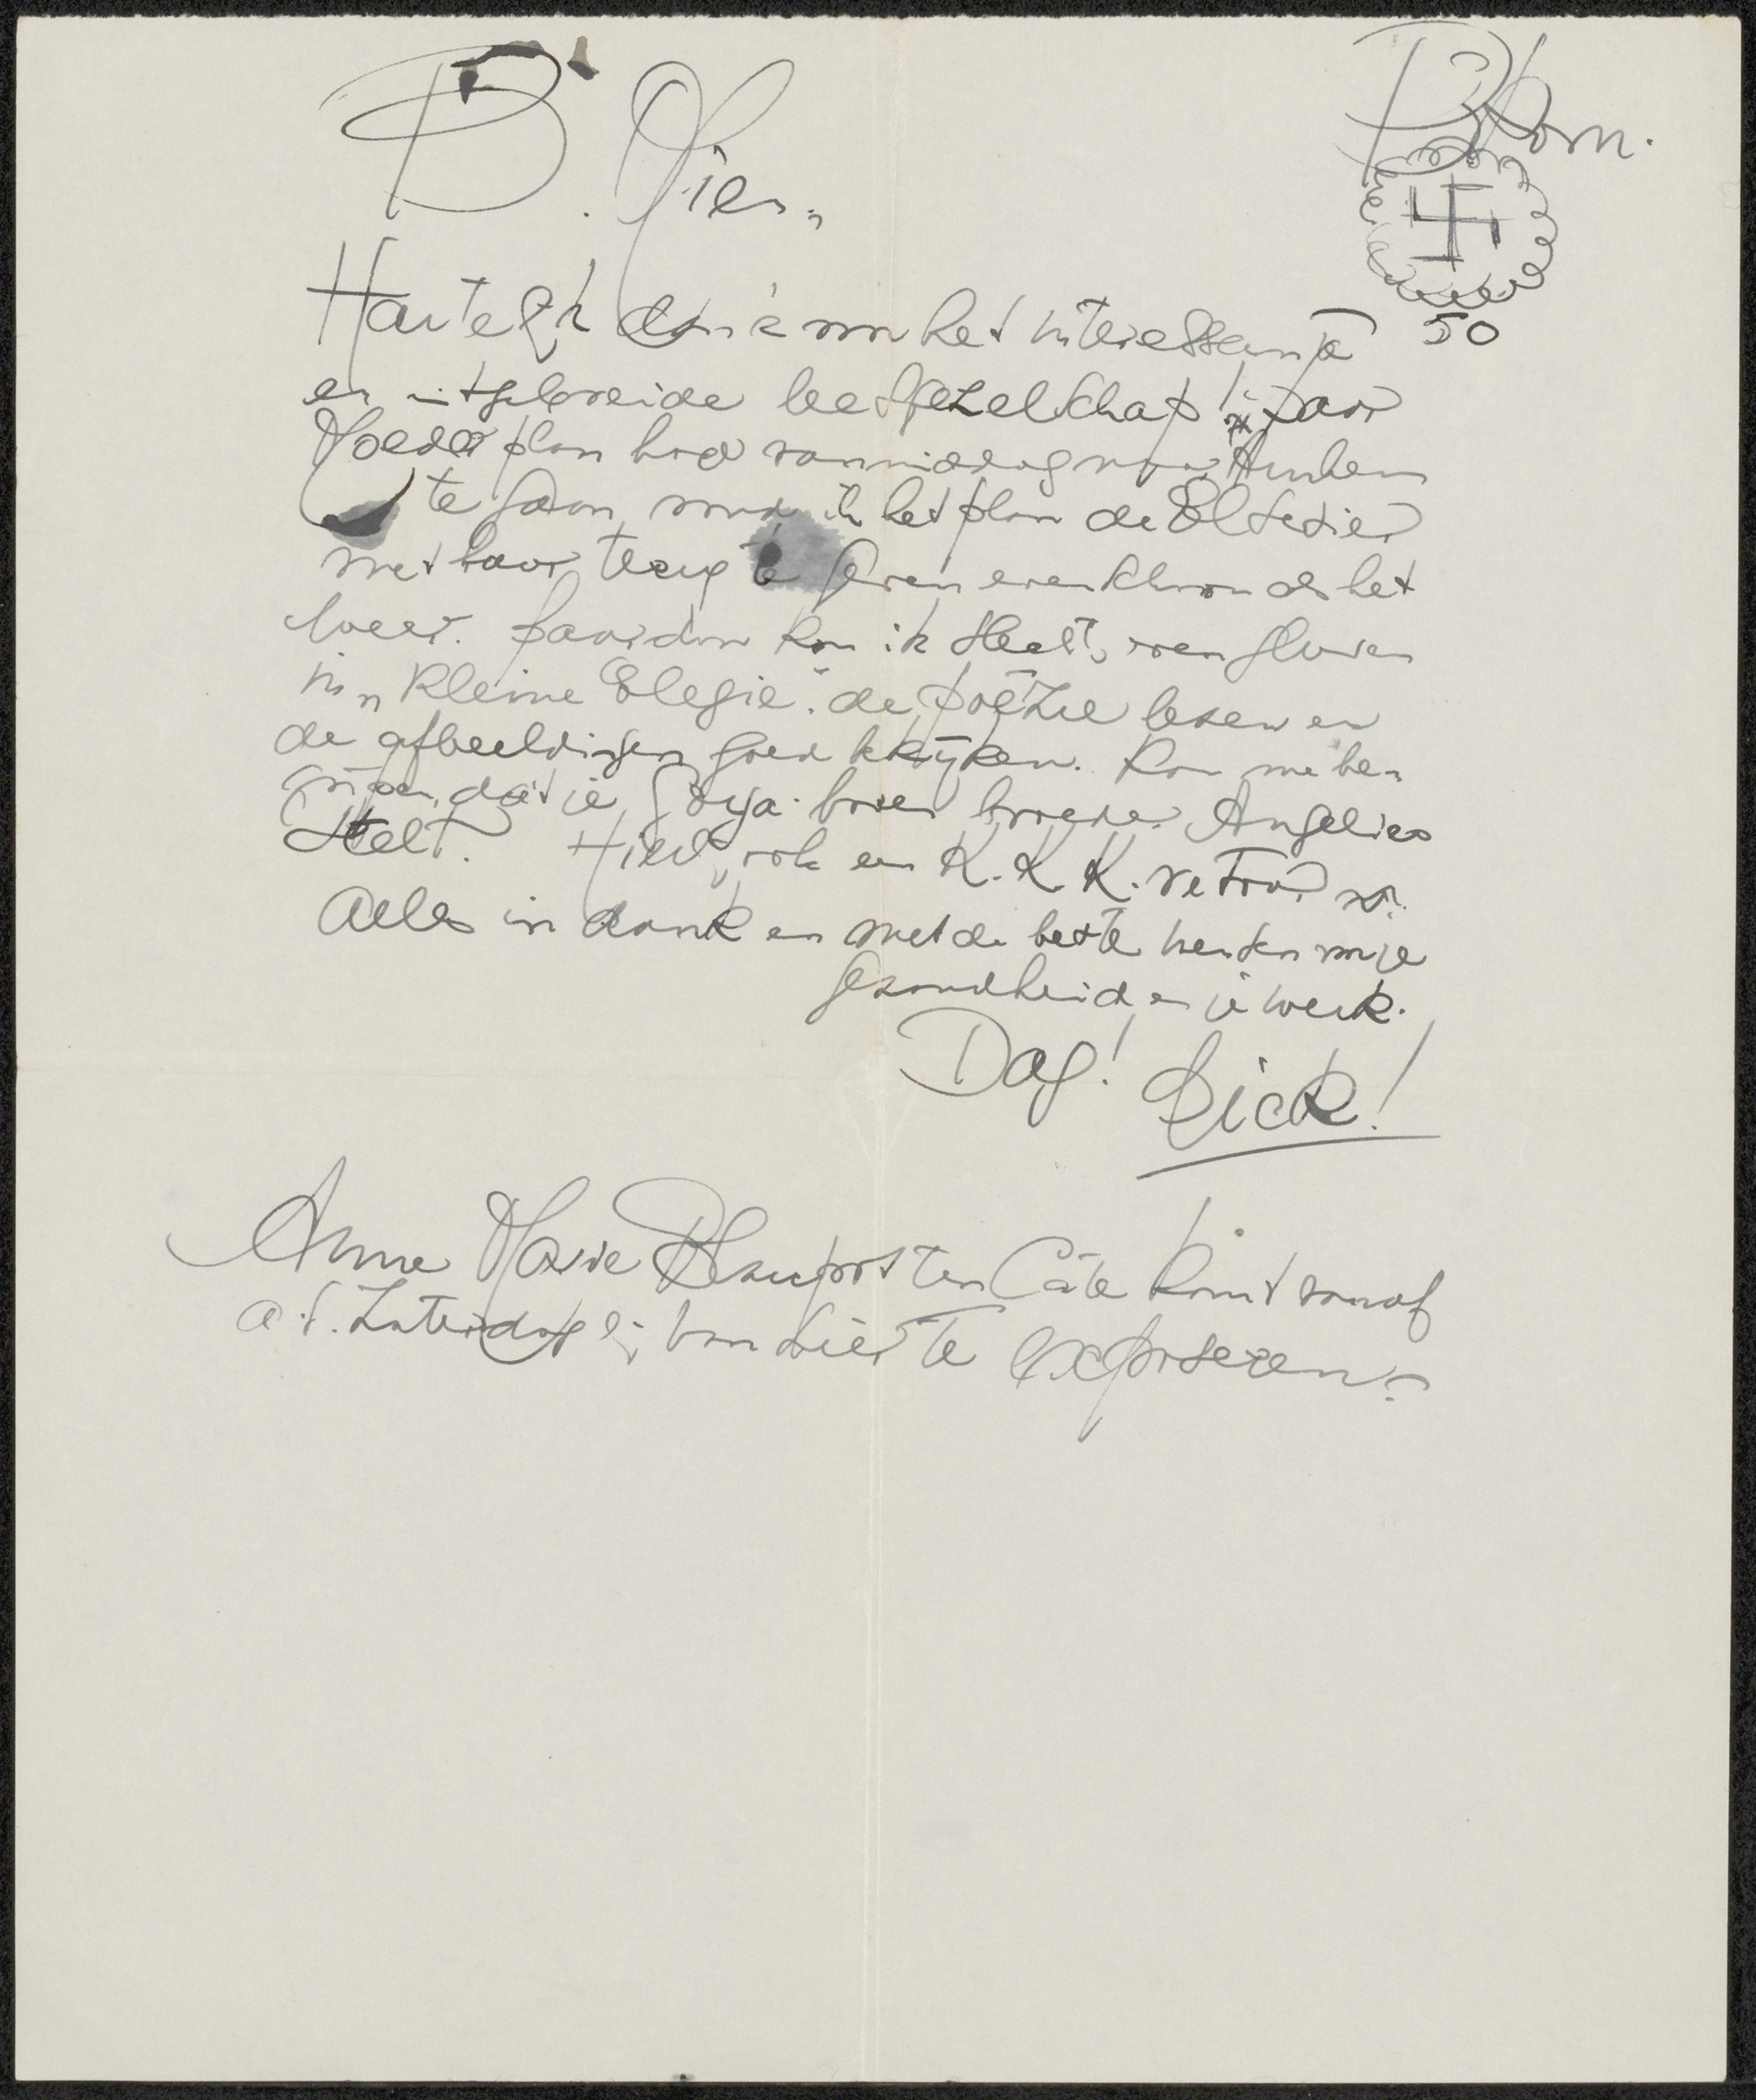 B. Pier.,
Blom.
4
5
50
Hartelijk dank van het interessante
en uitgebreide leesgezelschap! Daar
Moeder plan had vanmiddag naar Arnhem
te gaan, vond ik het plan de Elsevier
met haar terug te geven even schoon als het
weer. Daardoor kon ik slechts even gluren
in „Kleine Elegie". de poëzie lezen en
de afbeeldingen goed bekijken. Kan me be-
grijpen, dat je Goya boven broeder Angelico
stelt. Hield ook een K.K.K.
Alles in dank en met de beste wensen van je
gezondheid en je werk.
Dag! Dick!
Anne Marie Blaupot ten Cate komt vanaf
a.s. Zaterdag bij van Lier te exposeren.